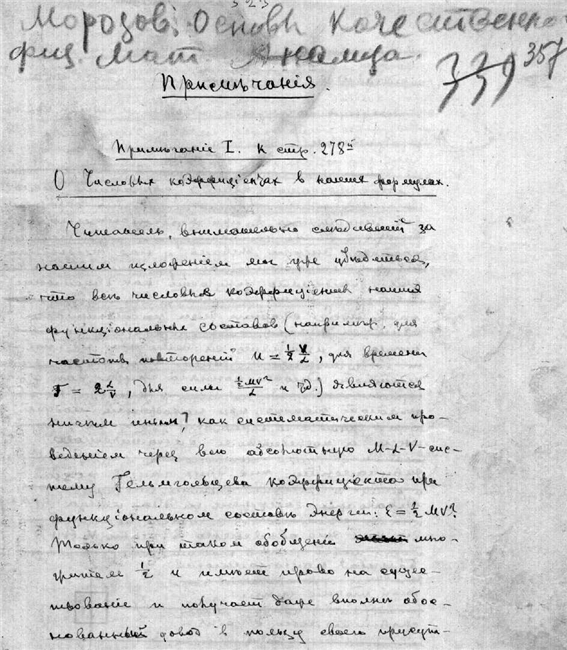 Морозов: Основы качественно-
физ. мат. Анализа.
339 357
Примѣчанія.
Примѣчаніе I. к стр. 278й
О числовых коэффиціентах в наших формулах.
Читатель, внимательно слѣдивший за
нашим изложеніем мог уже убѣдиться,
что всѣ числовые коэффиціенты наших
функціональных составов (напримѣр, для
частоты повтореній n = ½ V/L, для времени
T = 2 L/V, для силы ½MV²/L и т.д.) являются
ничѣм иным, как систематическим про-
ведением через всю абсолютную M-L-V-сис-
тему Гельмгольцева коэффиціента при
функціональном составѣ Энергіи: E = ½ MV².
Только при таком обобщеніи мно-
житель ½ и имѣет право на суще-
ствованіе и получает даже вполнѣ обос-
нованный довод в пользу своего присут-